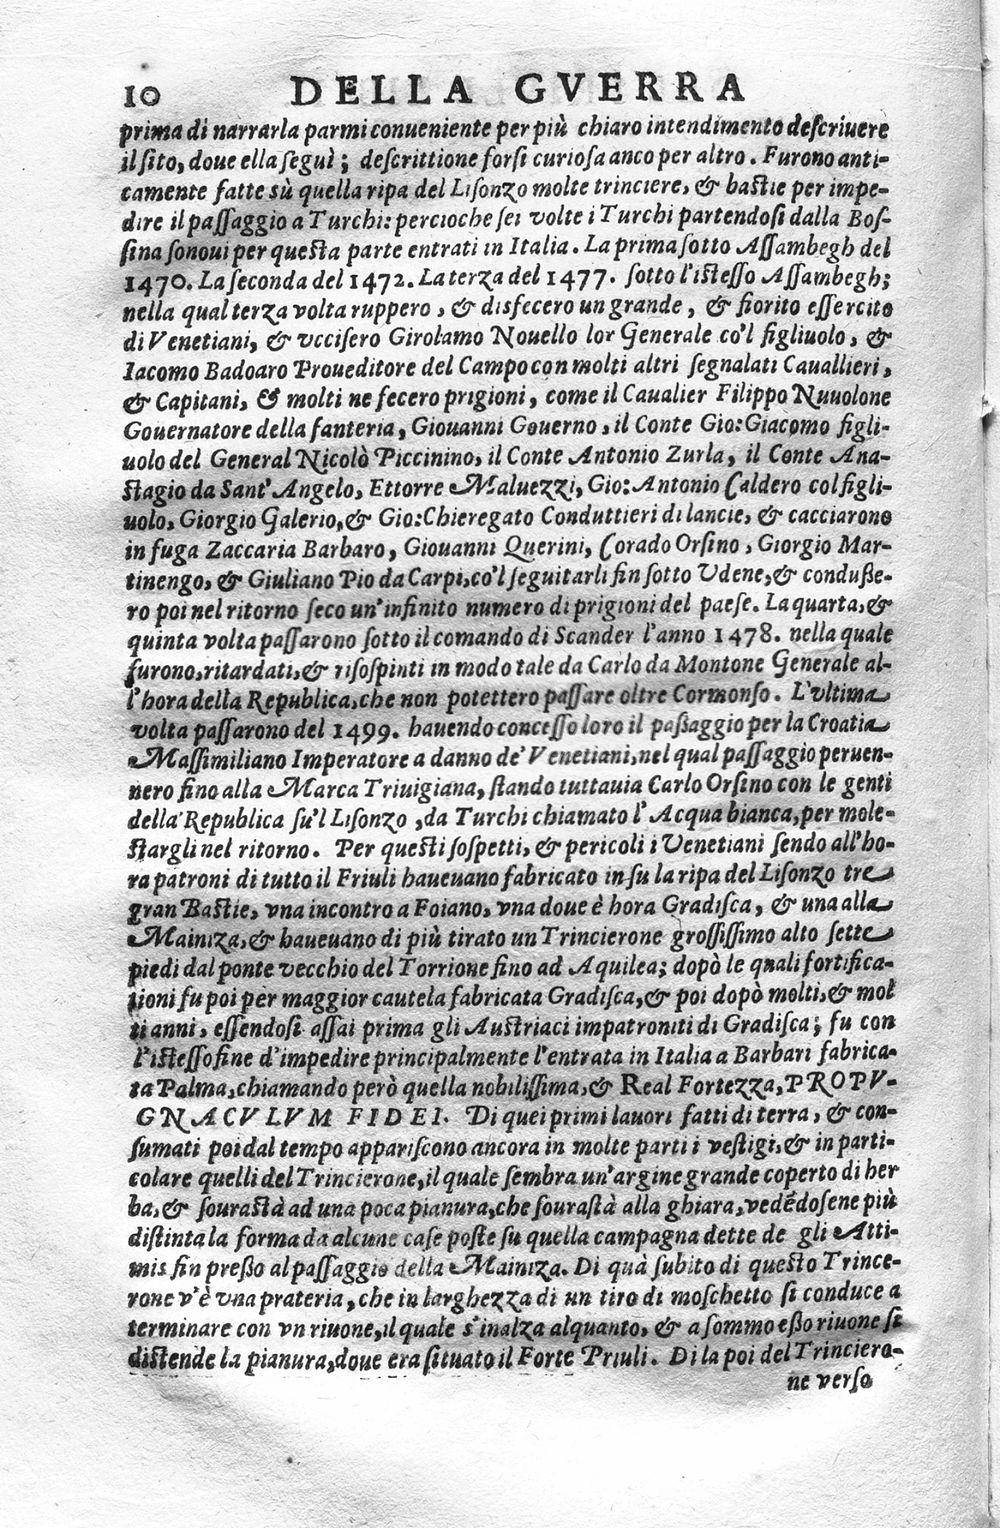 10 DELLA GVERRA
prima di narrarla parmi conueniente per più chiaro intendimento descriuere
il sito, doue ella seguì; descrittione forsi curiosa anco per altro. Furono anti-
camente fatte sù quella ripa del Lisonzo molte trinciere, & bastie per impe-
dire il passaggio a Turchi: percioche sei volte i Turchi partendosi dalla Bos-
sina sonoui per questa parte entrati in Italia. La prima sotto Assambegh del
1470. La seconda del 1472. La terza del 1477. sotto l'istesso Assambegh;
nella qual terza volta ruppero, & disfecero un grande, & fiorito essercito
di Venetiani, & vccisero Girolamo Nouello lor Generale co'l figliuolo, &
Iacomo Badoaro Proueditore del Campo con molti altri segnalati Cauallieri,
& Capitani, & molti ne fecero prigioni, come il Caualier Filippo Nuuolone
Gouernatore della fanteria, Giouanni Gouerno, il Conte Gio: Giacomo figli-
uolo del General Nicolò Piccinino, il Conte Antonio Zurla, il Conte Ana-
stagio da Sant' Angelo, Ettorre Maluezzi, Gio: Antonio Caldero col figli-
uolo, Giorgio Galerio, & Gio: Chieregato Conduttieri di lancie, & cacciarono
in fuga Zaccaria Barbaro, Giouanni Querini, Corado Orsino, Giorgio Mar-
tinengo, & Giuliano Pio da Carpi, co'l seguitarli fin sotto Udene, & condusse-
ro poi nel ritorno seco un'infinito numero di prigioni del paese. La quarta, &
quinta volta passarono sotto il comando di Scander l'anno 1478. nella quale
furono, ritardati, & risospinti in modo tale da Carlo da Montone Generale al-
l'hora della Republica, che non potettero passare oltre Cormonso. L'vltima
volta passarono del 1499. hauendo concesso loro il passaggio per la Croatia
Massimiliano Imperatore a danno de' Venetiani, nel qual passaggio peruen-
nero fino alla Marca Triuigiana, stando tuttauia Carlo Orsino con le genti
della Republica su'l Lisonzo, da Turchi chiamato l' Acqua bianca, per mole-
stargli nel ritorno. Per questi sospetti, & pericoli i Venetiani sendo all'ho-
ra patroni di tutto il Friuli haueuano fabricato in su la ripa del Lisonzo tre
gran Bastie, vna incontro a Foiano, vna doue è hora Gradisca, & una alla
Mainiza, & haueuano di più tirato un Trincierone grossissimo alto sette
piedi dal ponte vecchio del Torrione fino ad Aquilea; dopò le quali fortifica-
tioni fu poi per maggior cautela fabricata Gradisca, & poi dopò molti, & mol
ti anni, essendosi assai prima gli Austriaci impatroniti di Gradisca; fu con
l'istesso fine d'impedire principalmente l'entrata in Italia a Barbari fabrica-
ta Palma, chiamando però quella nobilissima, & Real Fortezza, PROPV-
GNACVLVM FIDEI. Di quei primi lauori fatti di terra, & con-
sumati poi dal tempo appariscono ancora in molte parti i vestigi, & in parti-
colare quelli del Trincierone, il quale sembra un'argine grande coperto di her
ba, & sourastà ad una poca pianura, che sourastà alla ghiara, vedēdosene più
distinta la forma da alcune case poste su quella campagna dette de gli Atti-
mis fin presso al passaggio della Mainiza. Di quà subito di questo Trince-
rone v'è vna prateria, che in larghezza di un tiro di moschetto si conduce a
terminare con vn riuone, il quale s'inalza alquanto, & a sommo esso riuone si
distende la pianura, doue era situato il Forte Priuli. Di la poi del Trinciero-
ne verso